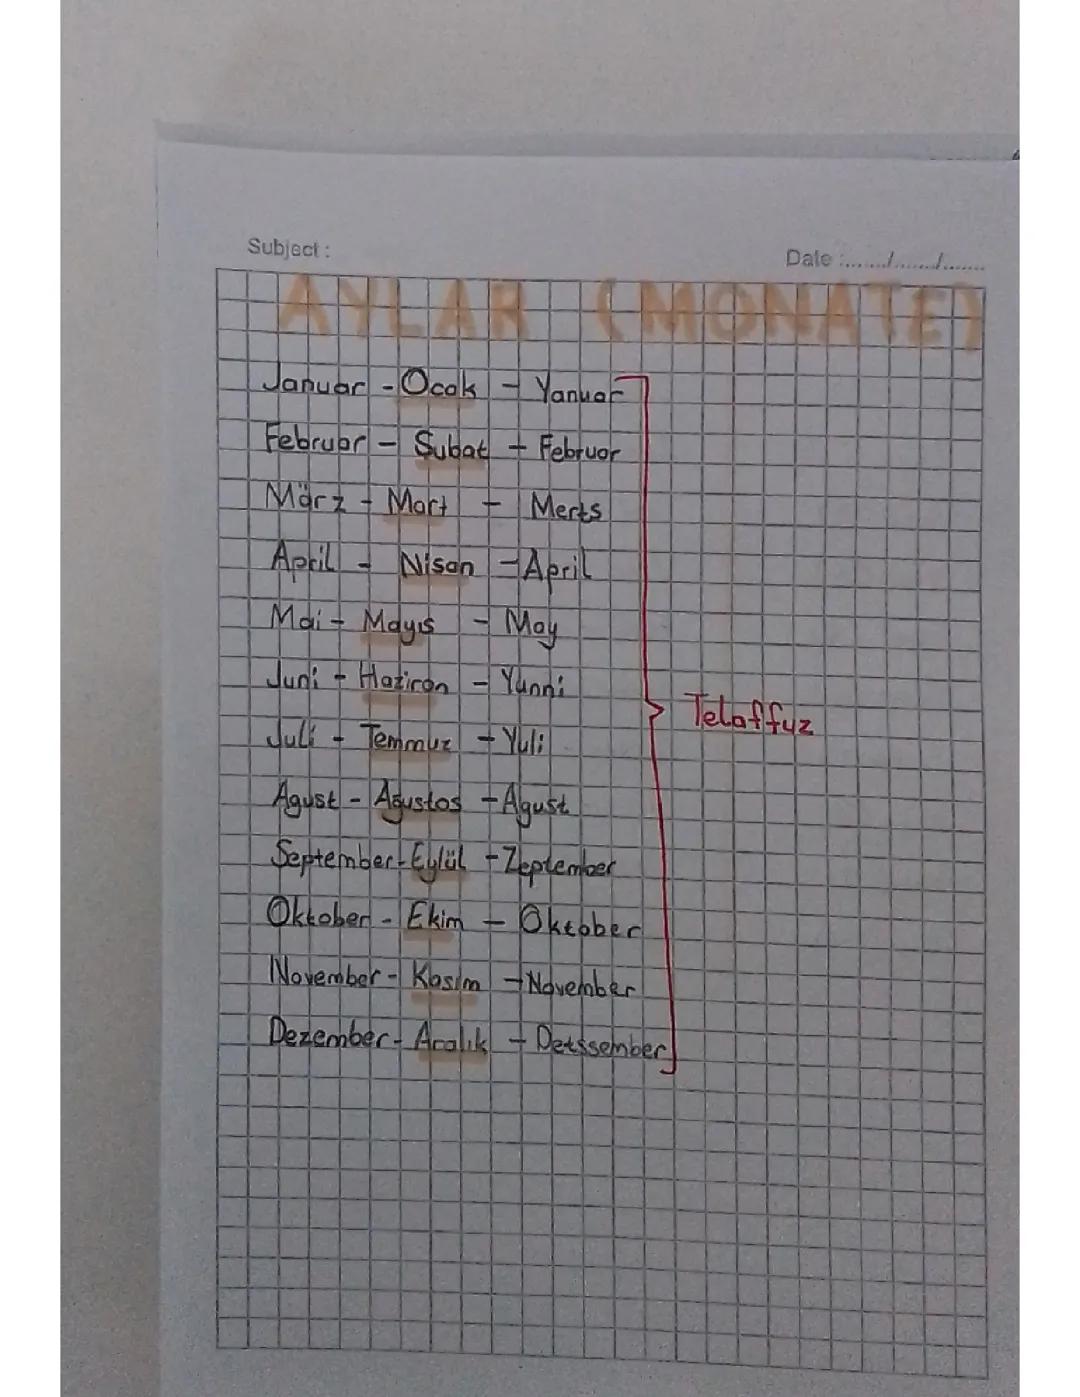 Subject :
Date :......./......./.......
AYLAR (MONATE)
Januar - Ocak - Yanuar
Februar - Şubat - Februar
März - Mart - Merts
April - Nisan - April
Mai - Mayıs - May
Juni - Haziran - Yunni
Juli - Temmuz - Yuli
Telaffuz
Agust - Ağustos - Agust
September - Eylül - Zeptember
Oktober - Ekim - Oktober
November - Kasım - November
Dezember - Aralık - Detssember